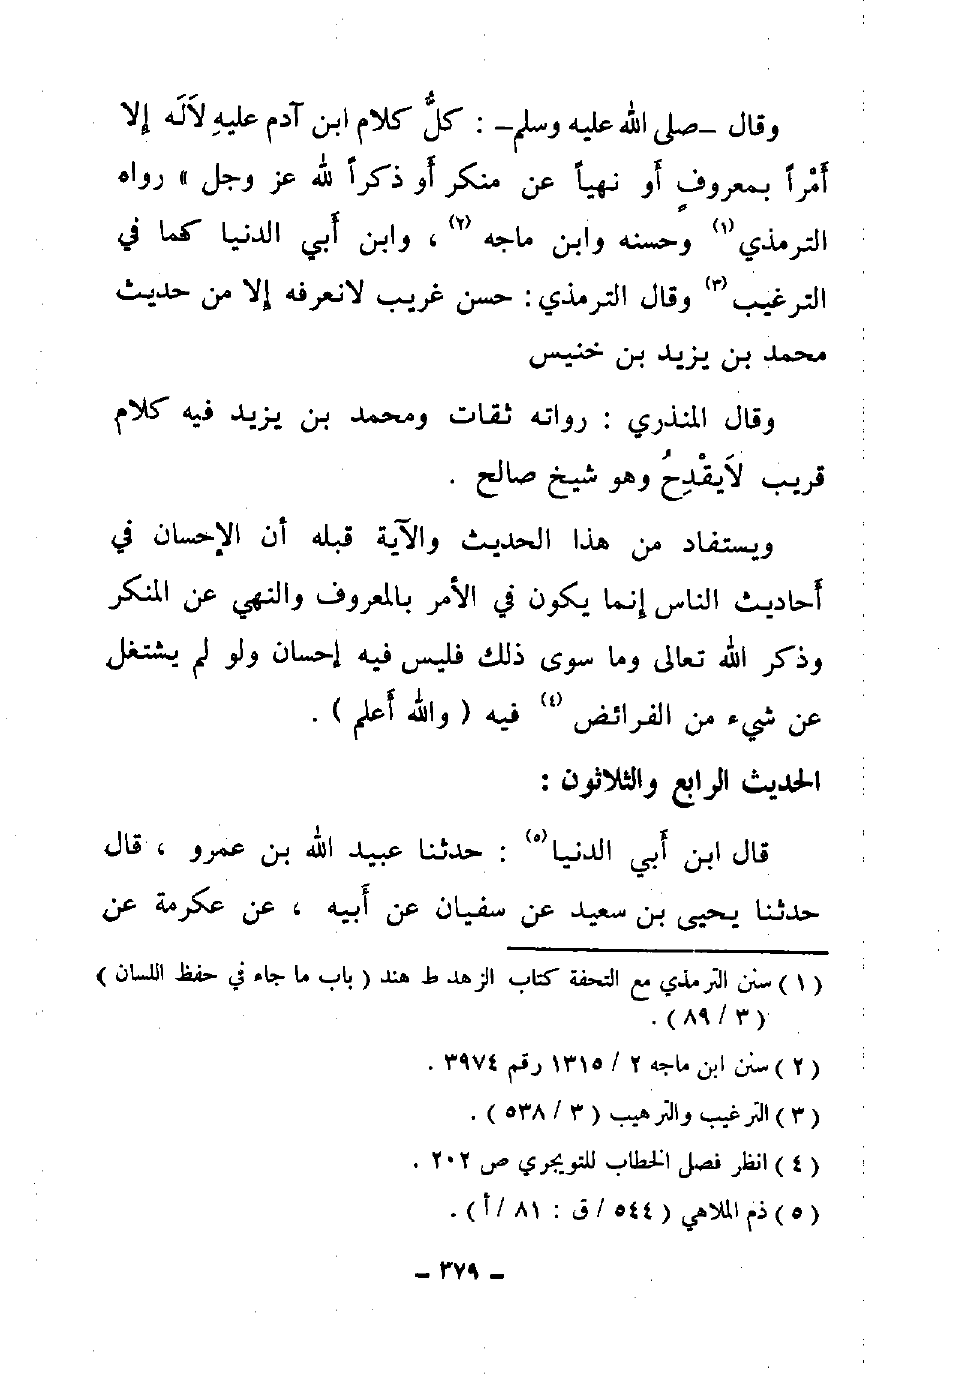 وقال –صلى الله عليه وسلم– : كلُّ كلام ابن آدم عليهِ لاَلَه إلا
أَمْراً بمعروفٍ أو نهياً عن منكر أو ذكراً لله عز وجل » رواه
الترمذي(١) وحسنه وابن ماجه(٢) ، وابن أبي الدنيا كما في
الترغيب(٣) وقال الترمذي : حسن غريب لانعرفه إلا من حديث
محمد بن يزيد بن خنيس
وقال المنذري : رواته ثقات ومحمد بن يزيد فيه كلام
قريب لاَيقْدِحُ وهو شيخ صالح .
ويستفاد من هذا الحديث والآية قبله أن الإحسان في
أحاديث الناس إنما يكون في الأمر بالمعروف والنهي عن المنكر
وذكر الله تعالى وما سوى ذلك فليس فيه إحسان ولو لم يشتغل
عن شيء من الفرائض(٤) فيه ( والله أعلم ) .
الحديث الرابع والثلاثون :
قال ابن أبي الدنيا(٥) : حدثنا عبيد الله بن عمرو ، قال
حدثنا يحيى بن سعيد عن سفيان عن أبيه ، عن عكرمة عن
( ١ ) سنن الترمذي مع التحفة كتاب الزهد ط هند ( باب ما جاء في حفظ اللسان )
( ٣ / ٨٩ ) .
( ٢ ) سنن ابن ماجه ٢ / ١٣١٥ رقم ٣٩٧٤ .
( ٣ ) الترغيب والترهيب ( ٣ / ٥٣٨ ) .
( ٤ ) انظر فصل الخطاب للتويجري ص ٢٠٢ .
( ٥ ) ذم الملاهي ( ٥٤٤ / ق : ٨١ / أ ) .
– ٣٧٩ –